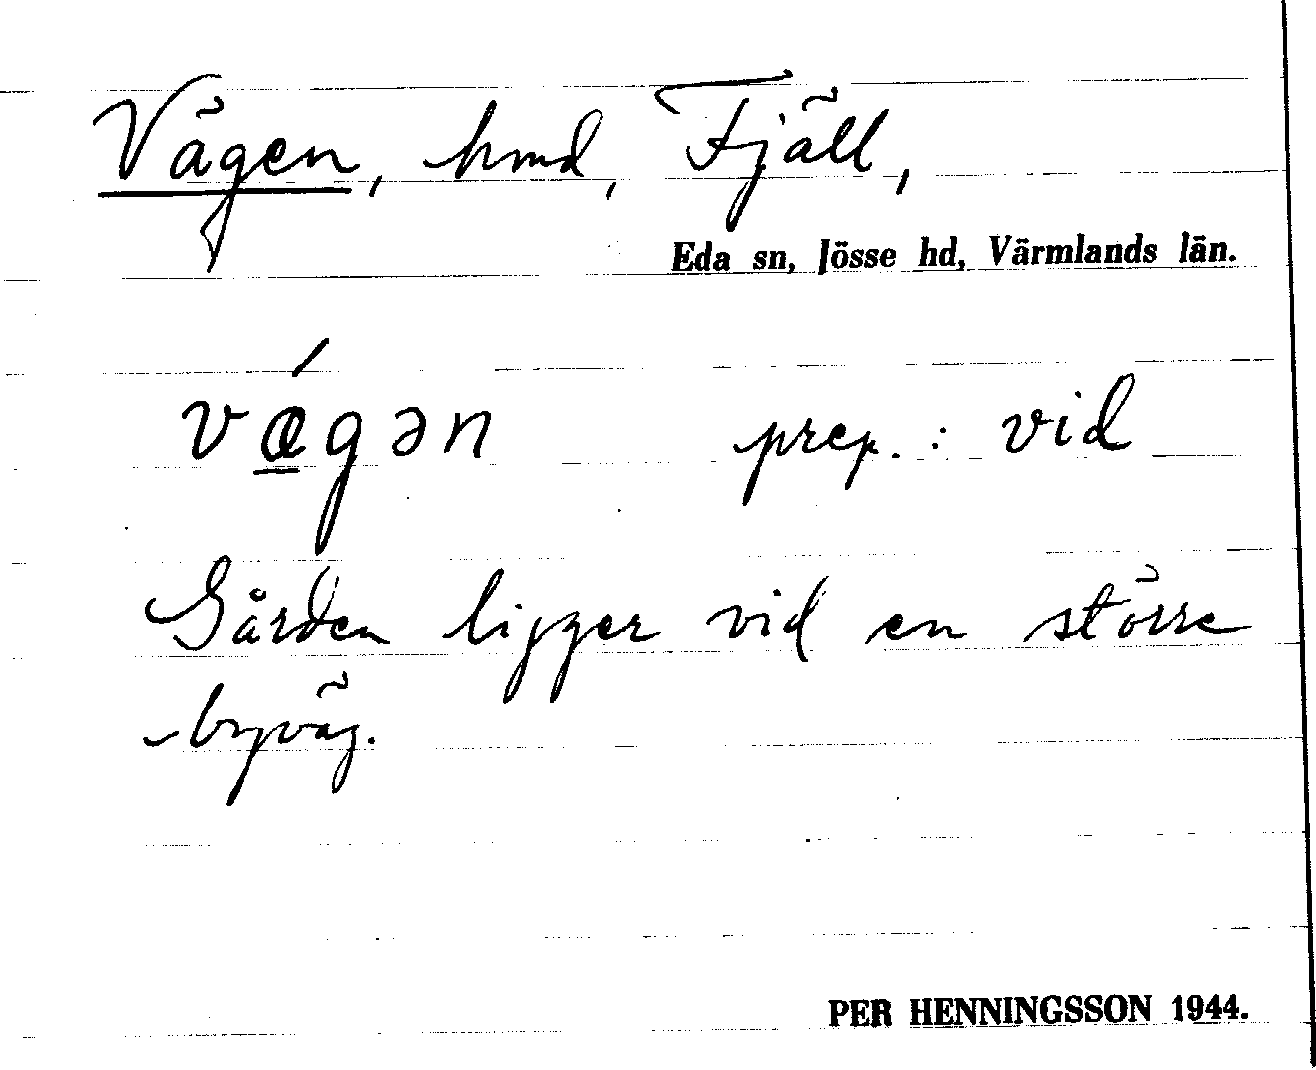 Vägen, hmd, Fjäll,
Eda sn, Jösse hd, Värmlands län.
vǽ̲gən prep. : vid
Gården ligger vid en större
byväg.
PER HENNINGSSON 1944.